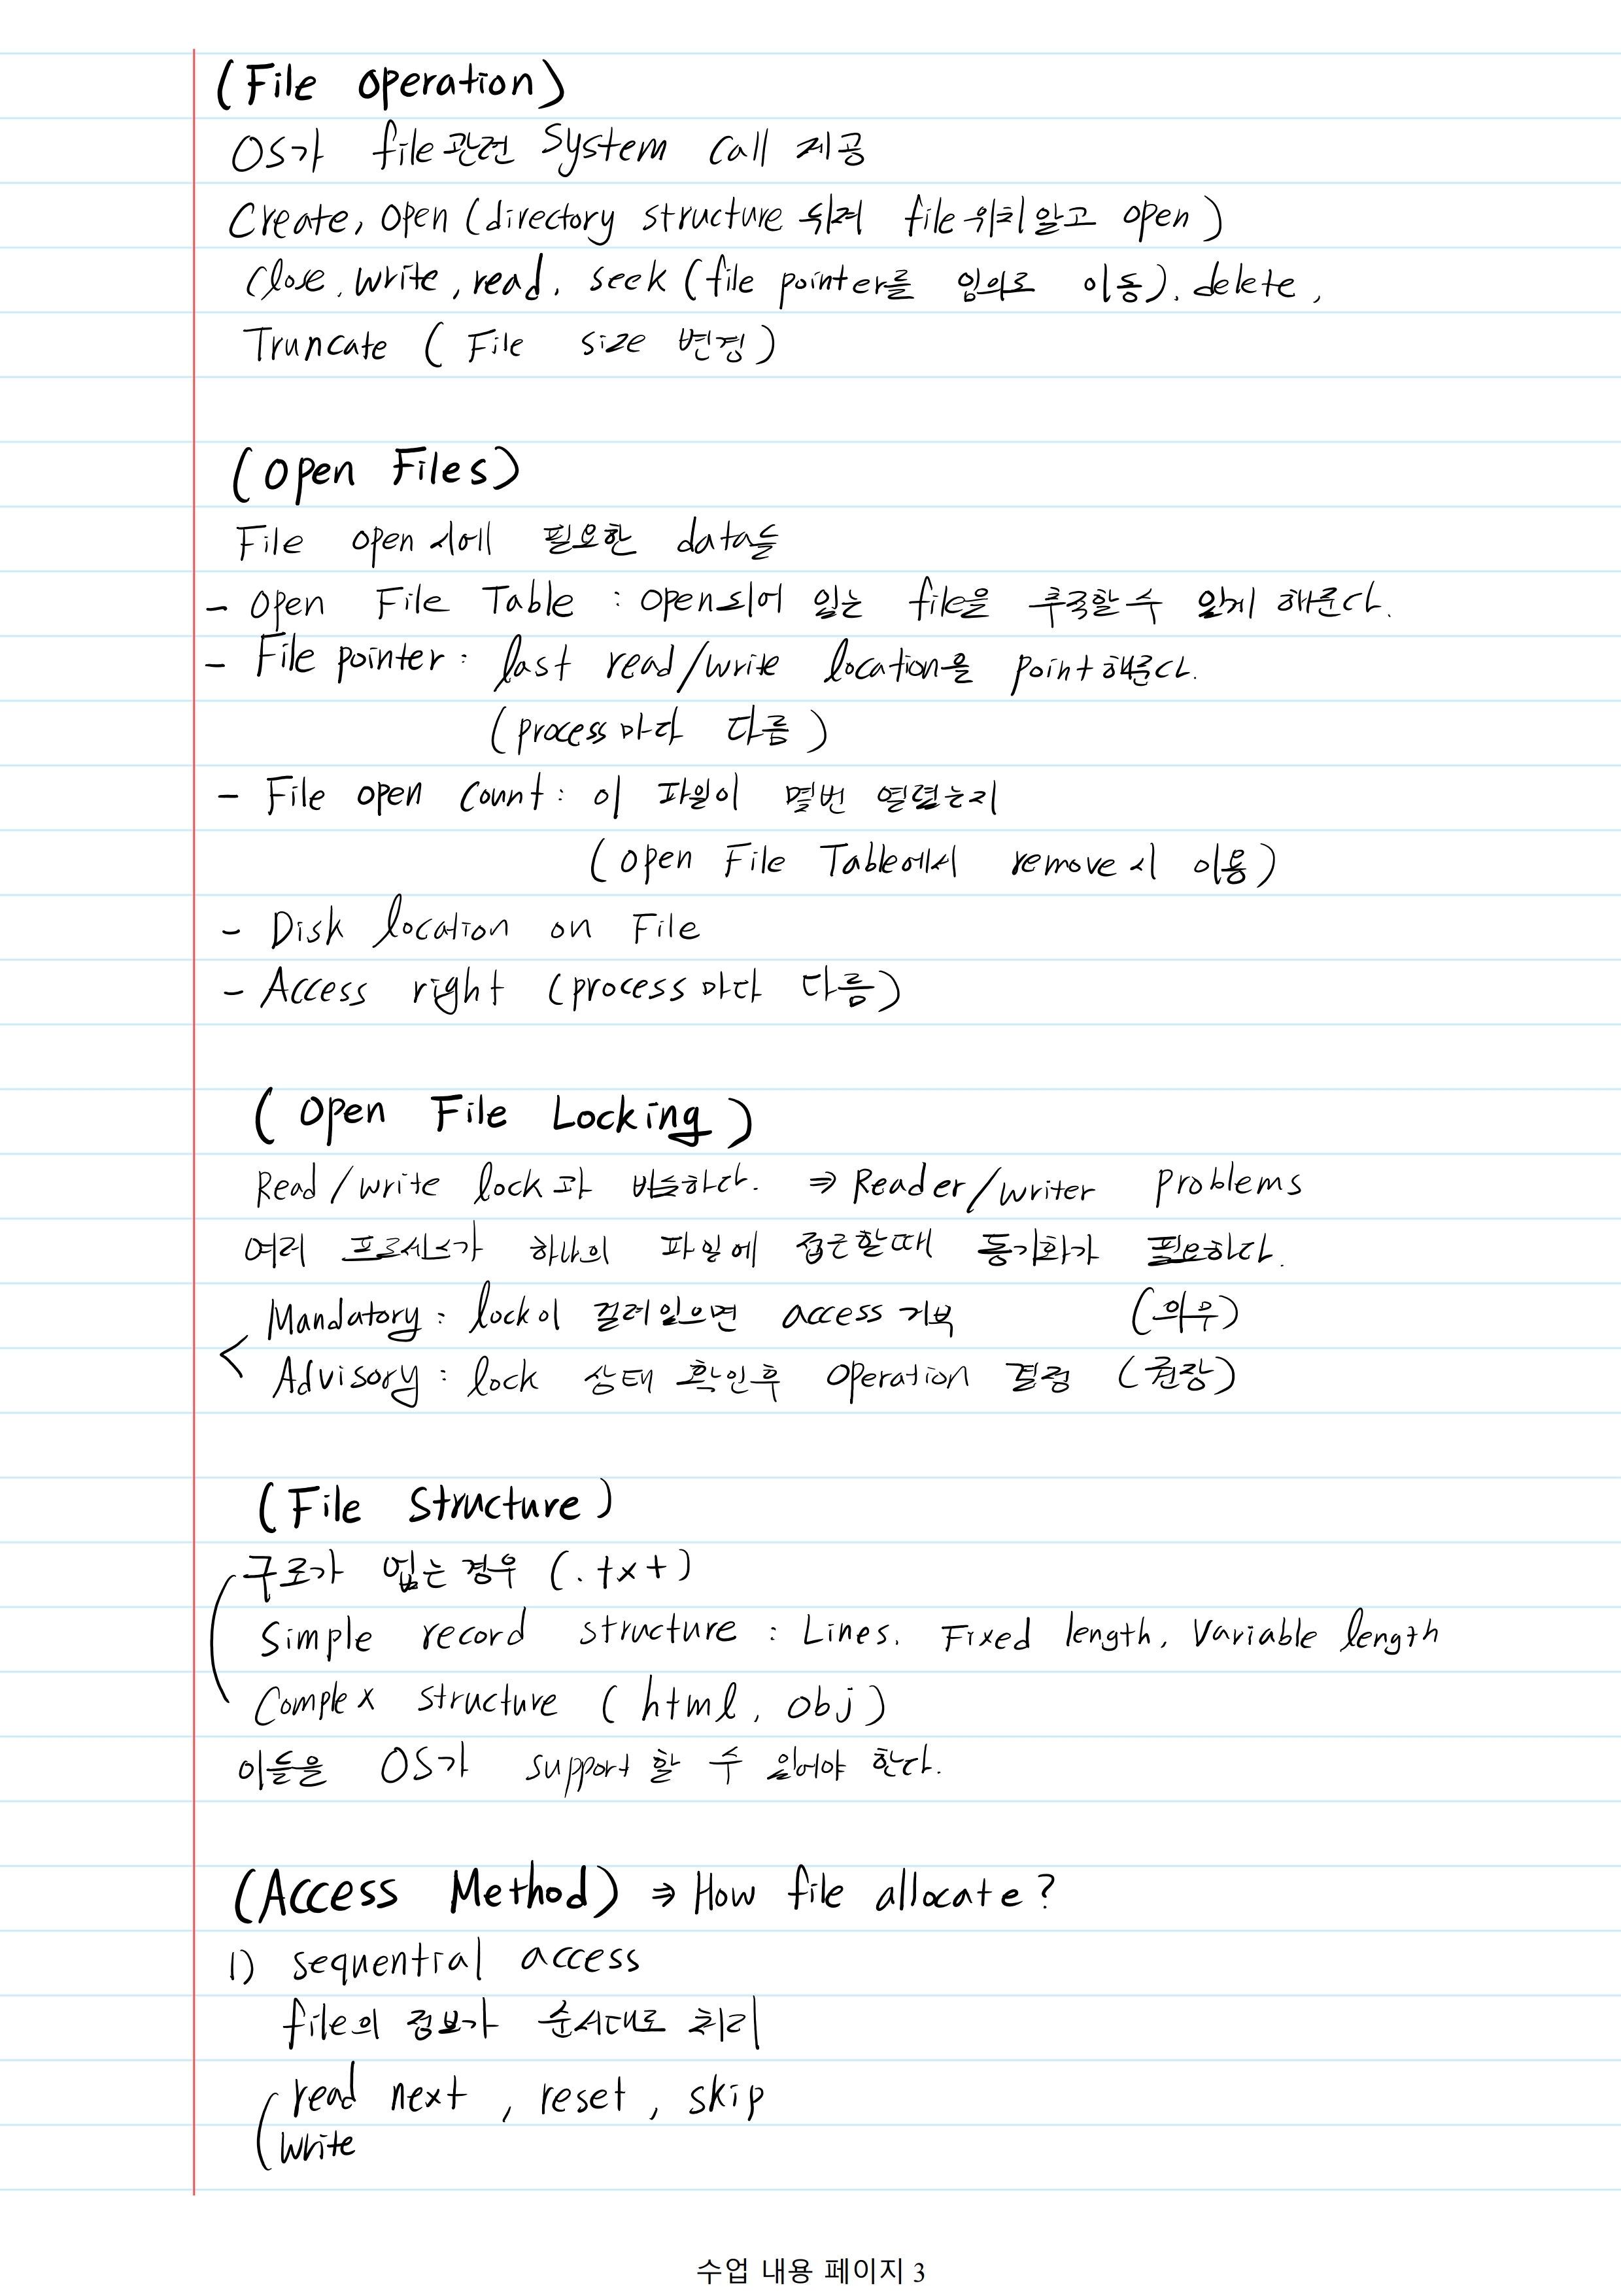 (File operation)
OS가 file관련 System call 제공
Create, open (directory structure 뒤져 file위치 알고 open)
close, write, read, seek (file pointer를 임의로 이동), delete,
Truncate (File size 변경)
(open Files)
File open시에 필요한 data들
- Open File Table : open되어 있는 file을 추적할 수 있게 해준다.
- File pointer : last read/write location을 point해준다.
(process마다 다름)
- File open count : 이 파일이 몇번 열렸는지
(open File Table에서 remove시 이용)
- Disk location on File
- Access right (process마다 다름)
(Open File Locking)
Read/write lock과 비슷하다. ⇒ Reader/writer problems
여러 프로세스가 하나의 파일에 접근할때 동기화가 필요하다.
Mandatory : lock이 걸려있으면 access 거부 (의무)
< Advisory : lock 상태 확인후 operation 결정 (권장)
(File Structure)
구조가 없는경우 (.txt)
Simple record structure : Lines, Fixed length, Variable length
Complex structure (html, obj)
이들을 OS가 support 할 수 있어야 한다.
(Access Method) ⇒ How file allocate?
1) sequential access
file의 정보가 순서대로 처리
read next, reset, skip
write
수업 내용 페이지 3